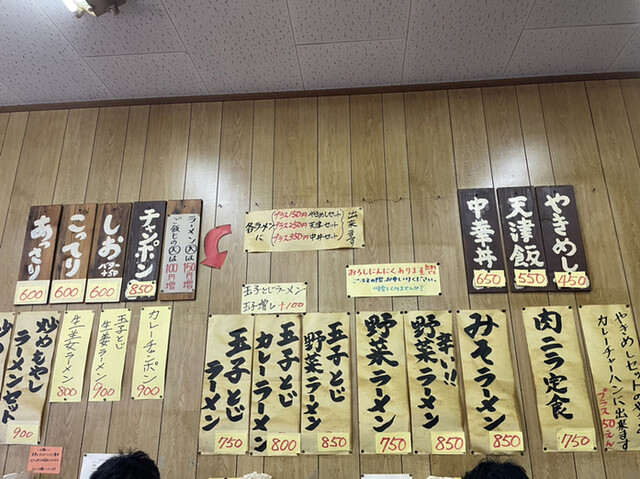 あっさり
600
こってり
600
しお
600
チャンポン
850
ラーメン大は150円増
ご飯もの大は100円増
各ラーメンに
プラス150円 やきめしセット
プラス250円 天津セット
プラス350円 中丼セット
出来ます
中華丼
650
天津飯
550
やきめし
450
おろしにんにくあります
玉子とじラーメン
玉子増し +100
炒めもやしラーメンセット
900
生姜ラーメン
800
玉子とじ
生姜ラーメン
900
カレーチャンポン
900
玉子とじラーメン
750
玉子とじ
カレーラーメン
800
玉子とじ
野菜ラーメン
850
野菜ラーメン
750
辛い!!
野菜ラーメン
850
みそラーメン
850
肉ニラ定食
750
やきめしセットの
カレーチャーハンに出来ます
プラス50えん